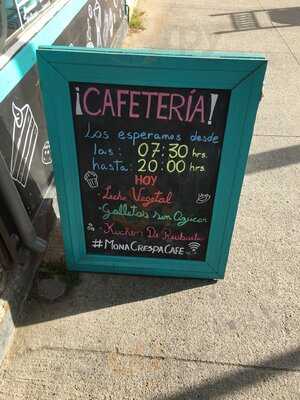 ¡CAFETERÍA!
Los esperamos desde
las: 07:30 hrs.
hasta: 20:00 hrs.
HOY
- Leche Vegetal
- Galletas sin Azúcar
- Kuchen De Ruibarbo
#MONACRESPACAFE